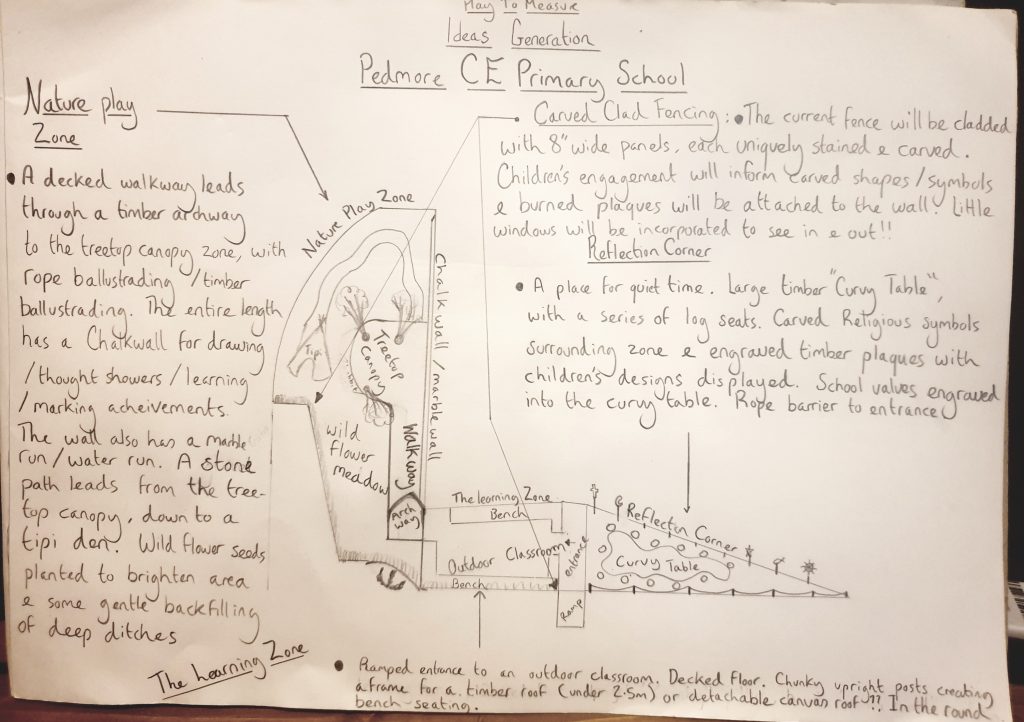 Play To Measure
Ideas Generation
Pedmore CE Primary School
Nature play
Zone
• A decked walkway leads
through a timber archway
to the treetop canopy zone, with
rope ballustrading /timber
ballustrading. The entire length
has a Chalkwall for drawing
/thought showers/learning
/marking acheivements.
The wall also has a marble
run/water run. A stone
path leads from the tree-
top canopy, down to a
tipi den. Wild flower seeds
planted to brighten area
& some gentle backfilling
of deep ditches
Carved Clad Fencing: • The current fence will be cladded
with 8" wide panels, each uniquely stained & carved.
Children's engagement will inform carved shapes/symbols
& burned plaques will be attached to the wall. Little
windows will be incorporated to see in & out!!
Reflection Corner
• A place for quiet time. Large timber "Curvy Table",
with a series of log seats. Carved Religious symbols
surrounding zone & engraved timber plaques with
children's designs displayed. School values engraved
into the curvy table. Rope barrier to entrance
Nature Play Zone
Chalkwall/marblewall
Tipi
Treetop
Canopy
wild
flower
meadow
Walkway
Arch
way
The learning Zone
Bench
Outdoor Classroom
Bench
entrance
Ramp
Reflection Corner
Curvy Table
The Learning Zone
• Ramped entrance to an outdoor classroom. Decked floor. Chunky upright posts creating
aframe for a timber roof (under 2.5m) or detachable canvas roof?? In the round
bench-seating.